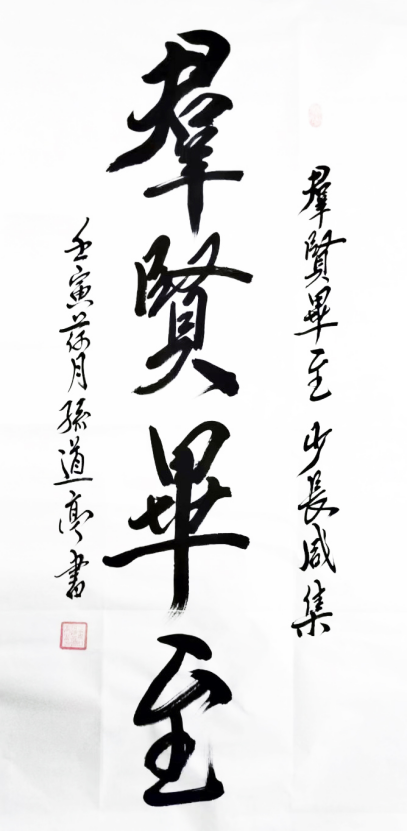 羣賢畢至少長咸集
羣賢畢至
壬寅荷月孫道亭書